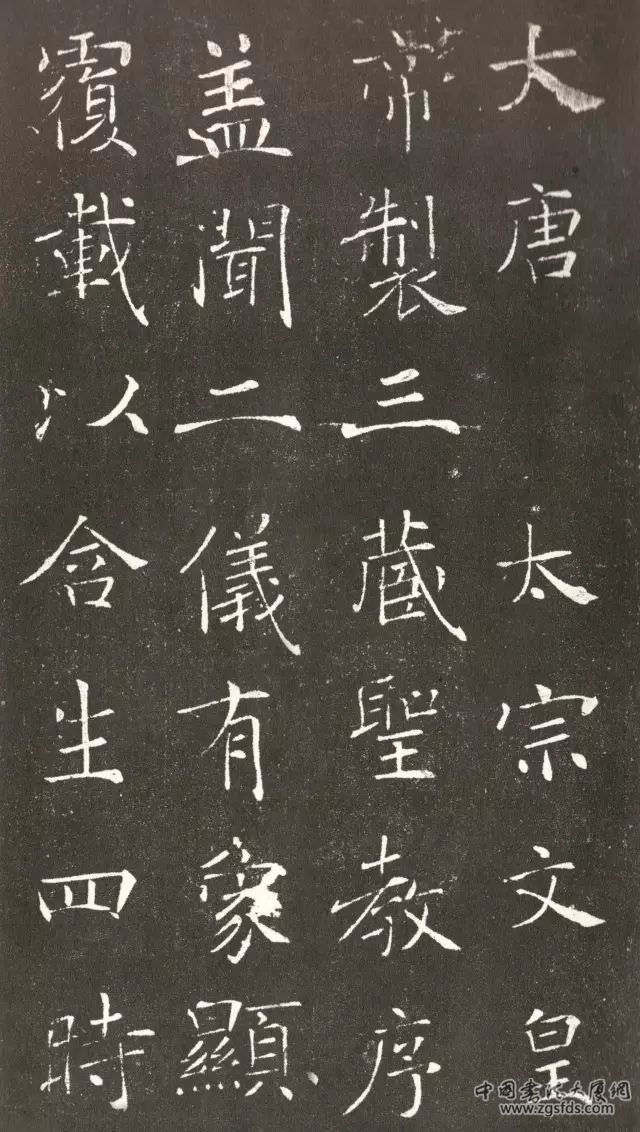 大唐太宗文皇
帝製三藏聖教序
盖聞二儀有象顯
覆載以含生四時
中国书法大厦网
www.zgsfds.com